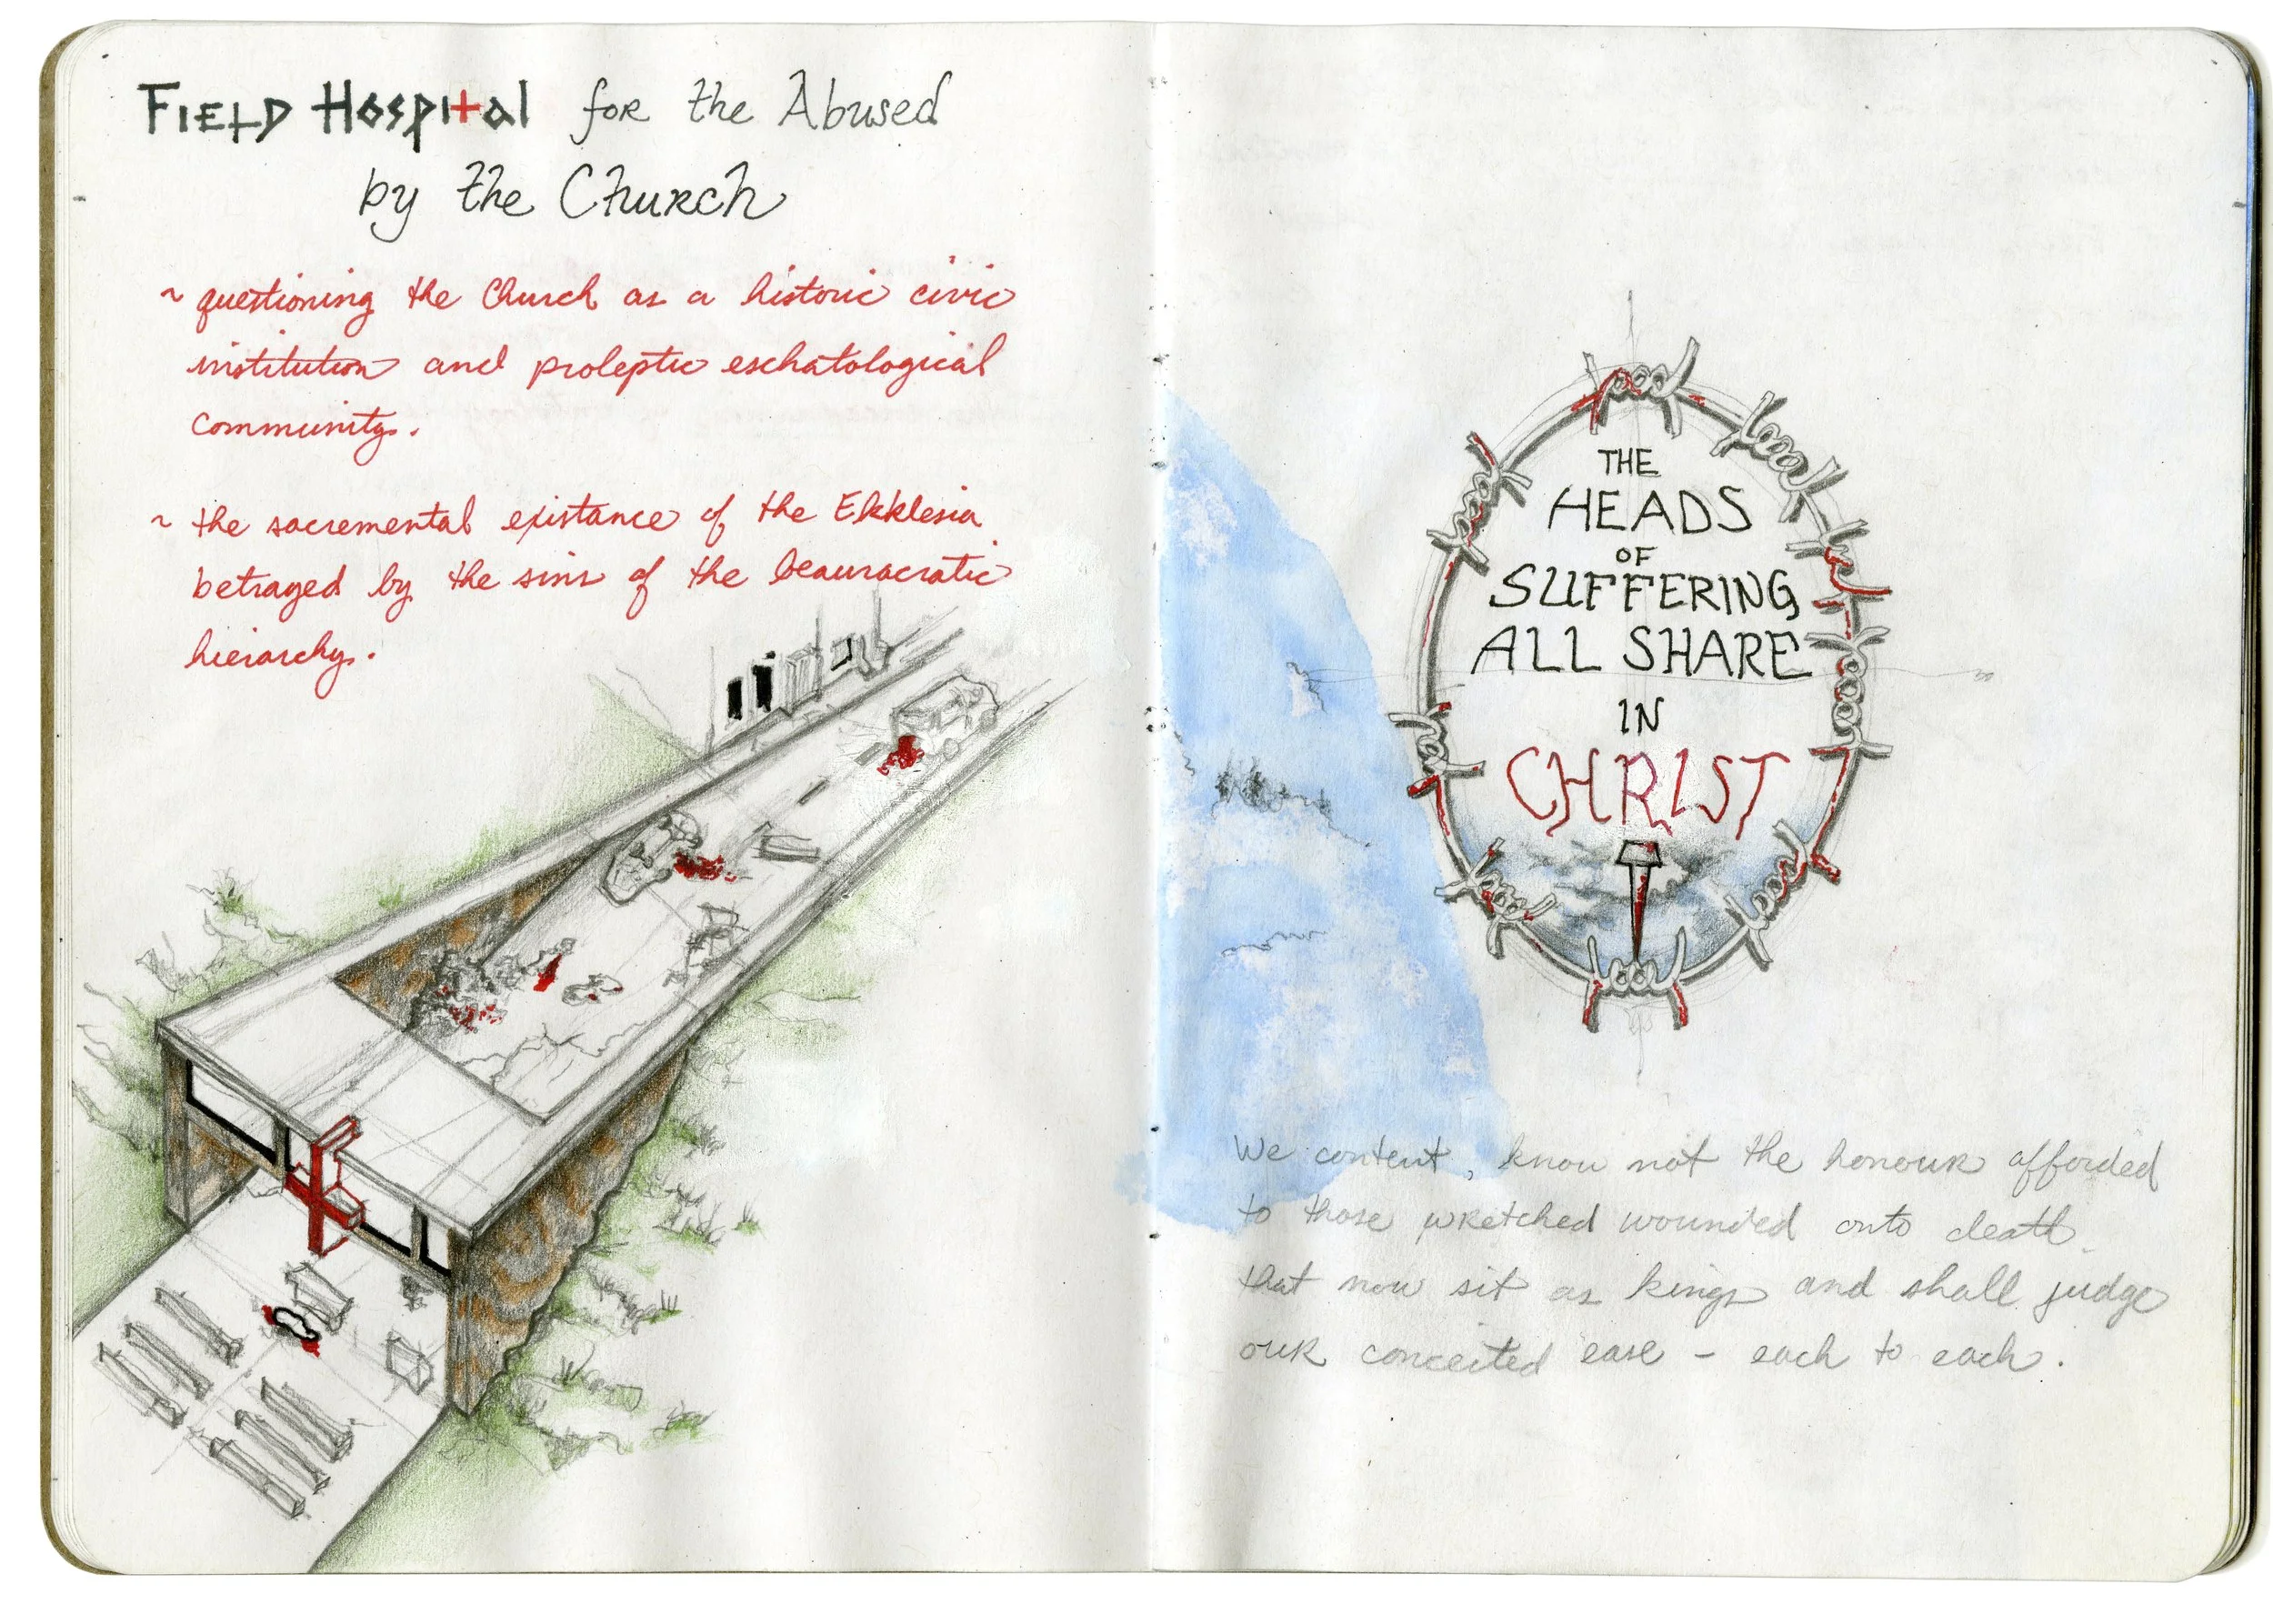 FIELD HOSPITAL for the Abused
by the Church
~ questioning the Church as a historic civic
institution and proleptic eschatological
community.
~ the sacremental existance of the Ekklesia
betrayed by the sins of the beauracratic
hierarchy.
THE
HEADS
OF
SUFFERING
ALL SHARE
IN
CHRIST
We content, know not the honour afforded
to those wretched wounded onto death
that now sit as kings and shall judge
our conceited ease - each to each.